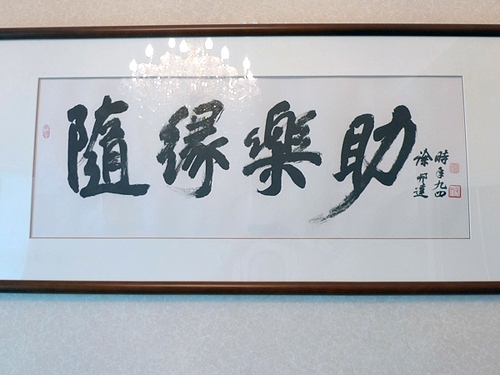 隨緣樂助
時年九四
徐邦達